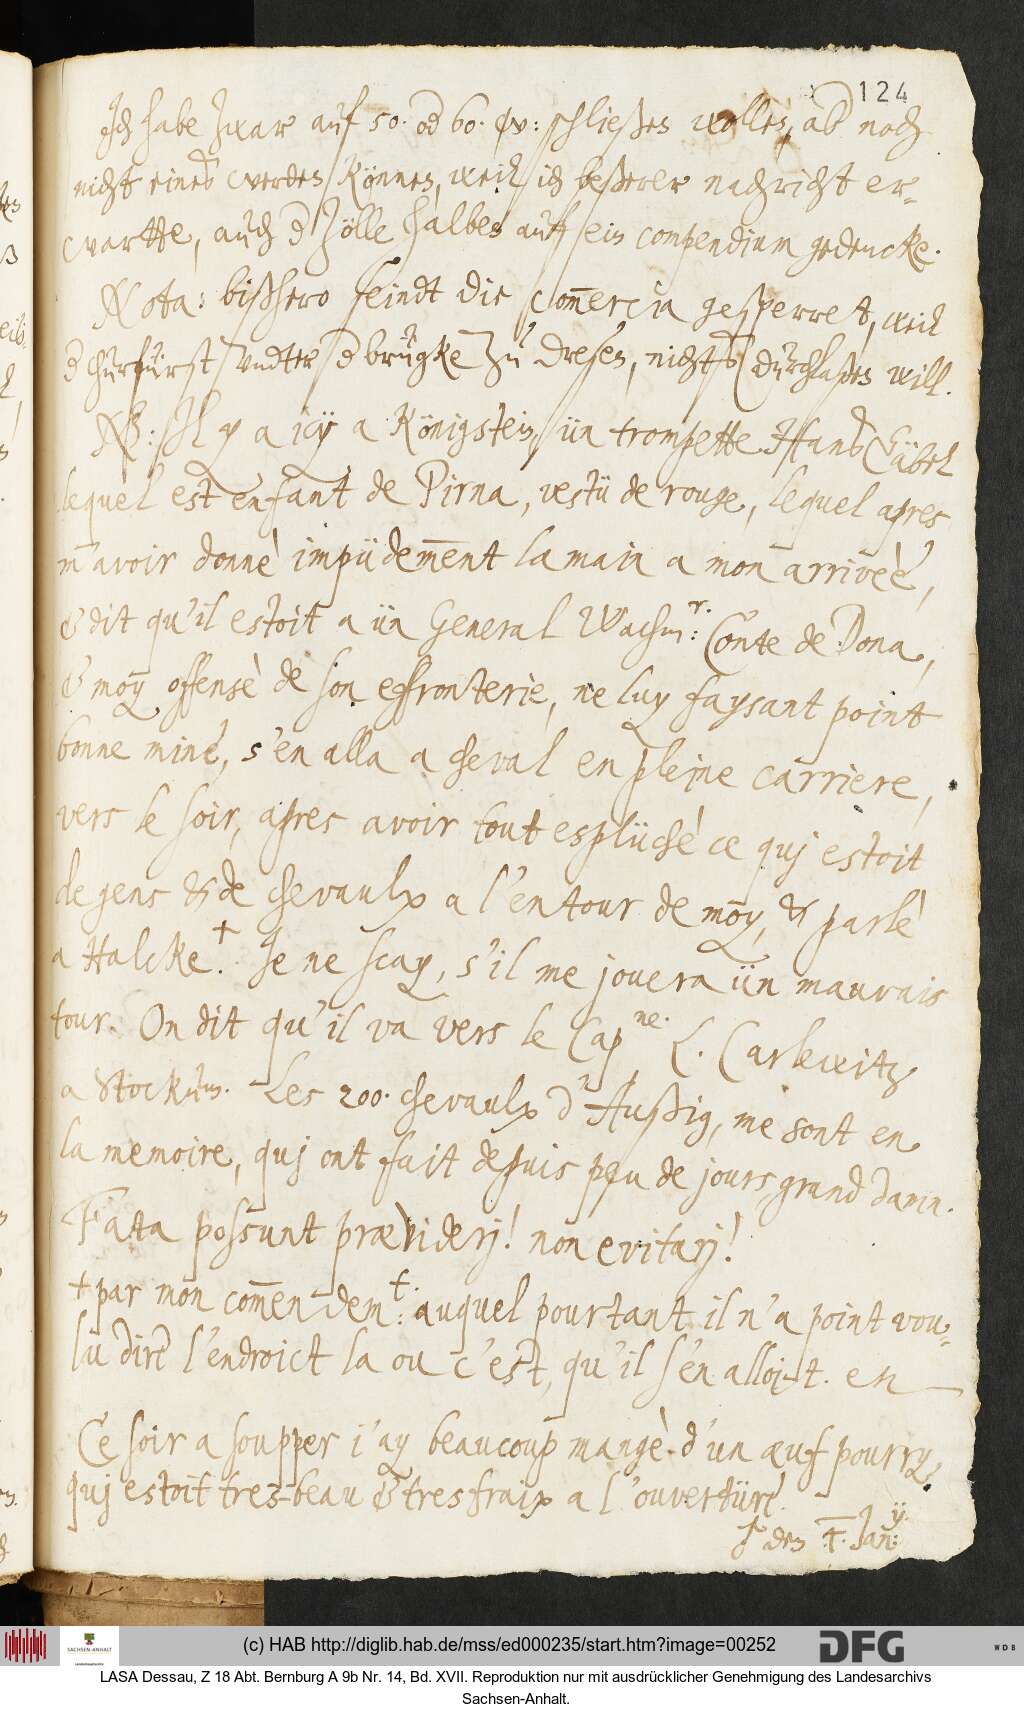 124
Ich habe zwar auf 50. od 60. W: schließen wollen, ab noch
nichts eines werden können, weil ich beßerer nachricht er-
wartte, auch d zölle halben auf ein compendium gedencke.
Nota: bißhero seindt die com̄ercia gesperret, weil
d Churfürst vndter d brügke zu dresen, nichts durchlaßen will.
NB: Il y a icÿ a Königstein, ün trompette Hanß Gäbel
lequel est enfant de Pirna, vestü de rouge, lequel apres
m'avoir donnè impüdem̄ent la main a mon arrivèe,
& dit qu'il estoit a ün General Wachm:r. Conte de Dona,
& moy offensè de son effronterie, ne luy faysant point
bonne mine, s'en alla a cheval en pleine carriere,
vers le soir, apres avoir tout esplüchè ce quj estoit
de gens & de chevaulx a l'entour de moy, & parlè
a Halcke.+ Je ne scay, s'il me jouera ün mauvais
tour. On dit qu'il va vers le Cap.ne L. Carlewitz
a Stockum. Les 200. chevaulx d'Außig, me sont en
la memoire, quj ont fait depuis peu de jours grand dam̄.
Fata possunt prævideri! non evitarj!
+ par mon com̄endem:t. auquel pourtant il n'a point vou-
lu dire l'endroict la ou c'est, qu'il s'en alloit. en
Ce soir a soupper i'ay beaucoup mangè d'un œuf pourry,
quj estoit tres-beau & tresfraix a l'ouvertüre.
den T. Jan:
(c) HAB http://diglib.hab.de/mss/ed000235/start.htm?image=00252
SACHSEN-ANHALT
DFG
WDB
LASA Dessau, Z 18 Abt. Bernburg A 9b Nr. 14, Bd. XVII. Reproduktion nur mit ausdrücklicher Genehmigung des Landesarchivs
Sachsen-Anhalt.